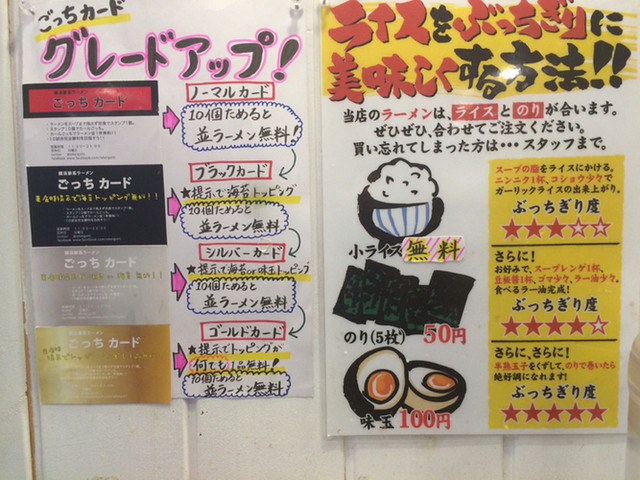 ごっちカード
グレードアップ!
横浜家系ラーメン
ごっち カード
ノーマルカード
10個ためると
並ラーメン無料!
ブラックカード
横浜家系ラーメン
ごっち カード
★提示で海苔トッピング
10個ためると
並ラーメン無料
シルバーカード
横浜家系ラーメン
ごっち カード
★提示で海苔or味玉トッピング
10個ためると
並ラーメン無料!
ゴールドカード
ごっち カード
★提示でトッピングが
何でも1品無料!
10個ためると
並ラーメン無料!
ライスをぶっちぎりに
美味しくする方法!!
当店のラーメンは、ライスとのりが合います。
ぜひぜひ、合わせてご注文ください。
買い忘れてしまった方は・・・スタッフまで。
小ライス 無料
のり(5枚) 50円
味玉 100円
スープの脂をライスにかける。
ニンニク1杯、コショウ少々で
ガーリックライスの出来上がり。
ぶっちぎり度
★★★☆☆
さらに!
お好みで、スープレンゲ1杯、
豆板醤1杯、ゴマ少々、ラー油少々。
食べるラー油完成!
ぶっちぎり度
★★★★☆
さらに、さらに!
半熟玉子をくずして、のりで巻いたら
絶好調になれます!
ぶっちぎり度
★★★★★